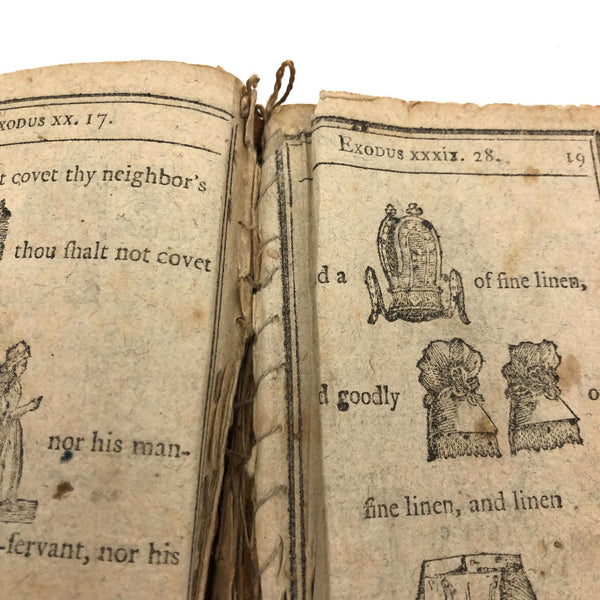 EXODUS XX. 17.
covet thy neighbor's
thou ſhalt not covet
nor his man-
-ſervant, nor his
EXODUS XXXIX. 28. 19
a of fine linen,
goodly
fine linen, and linen